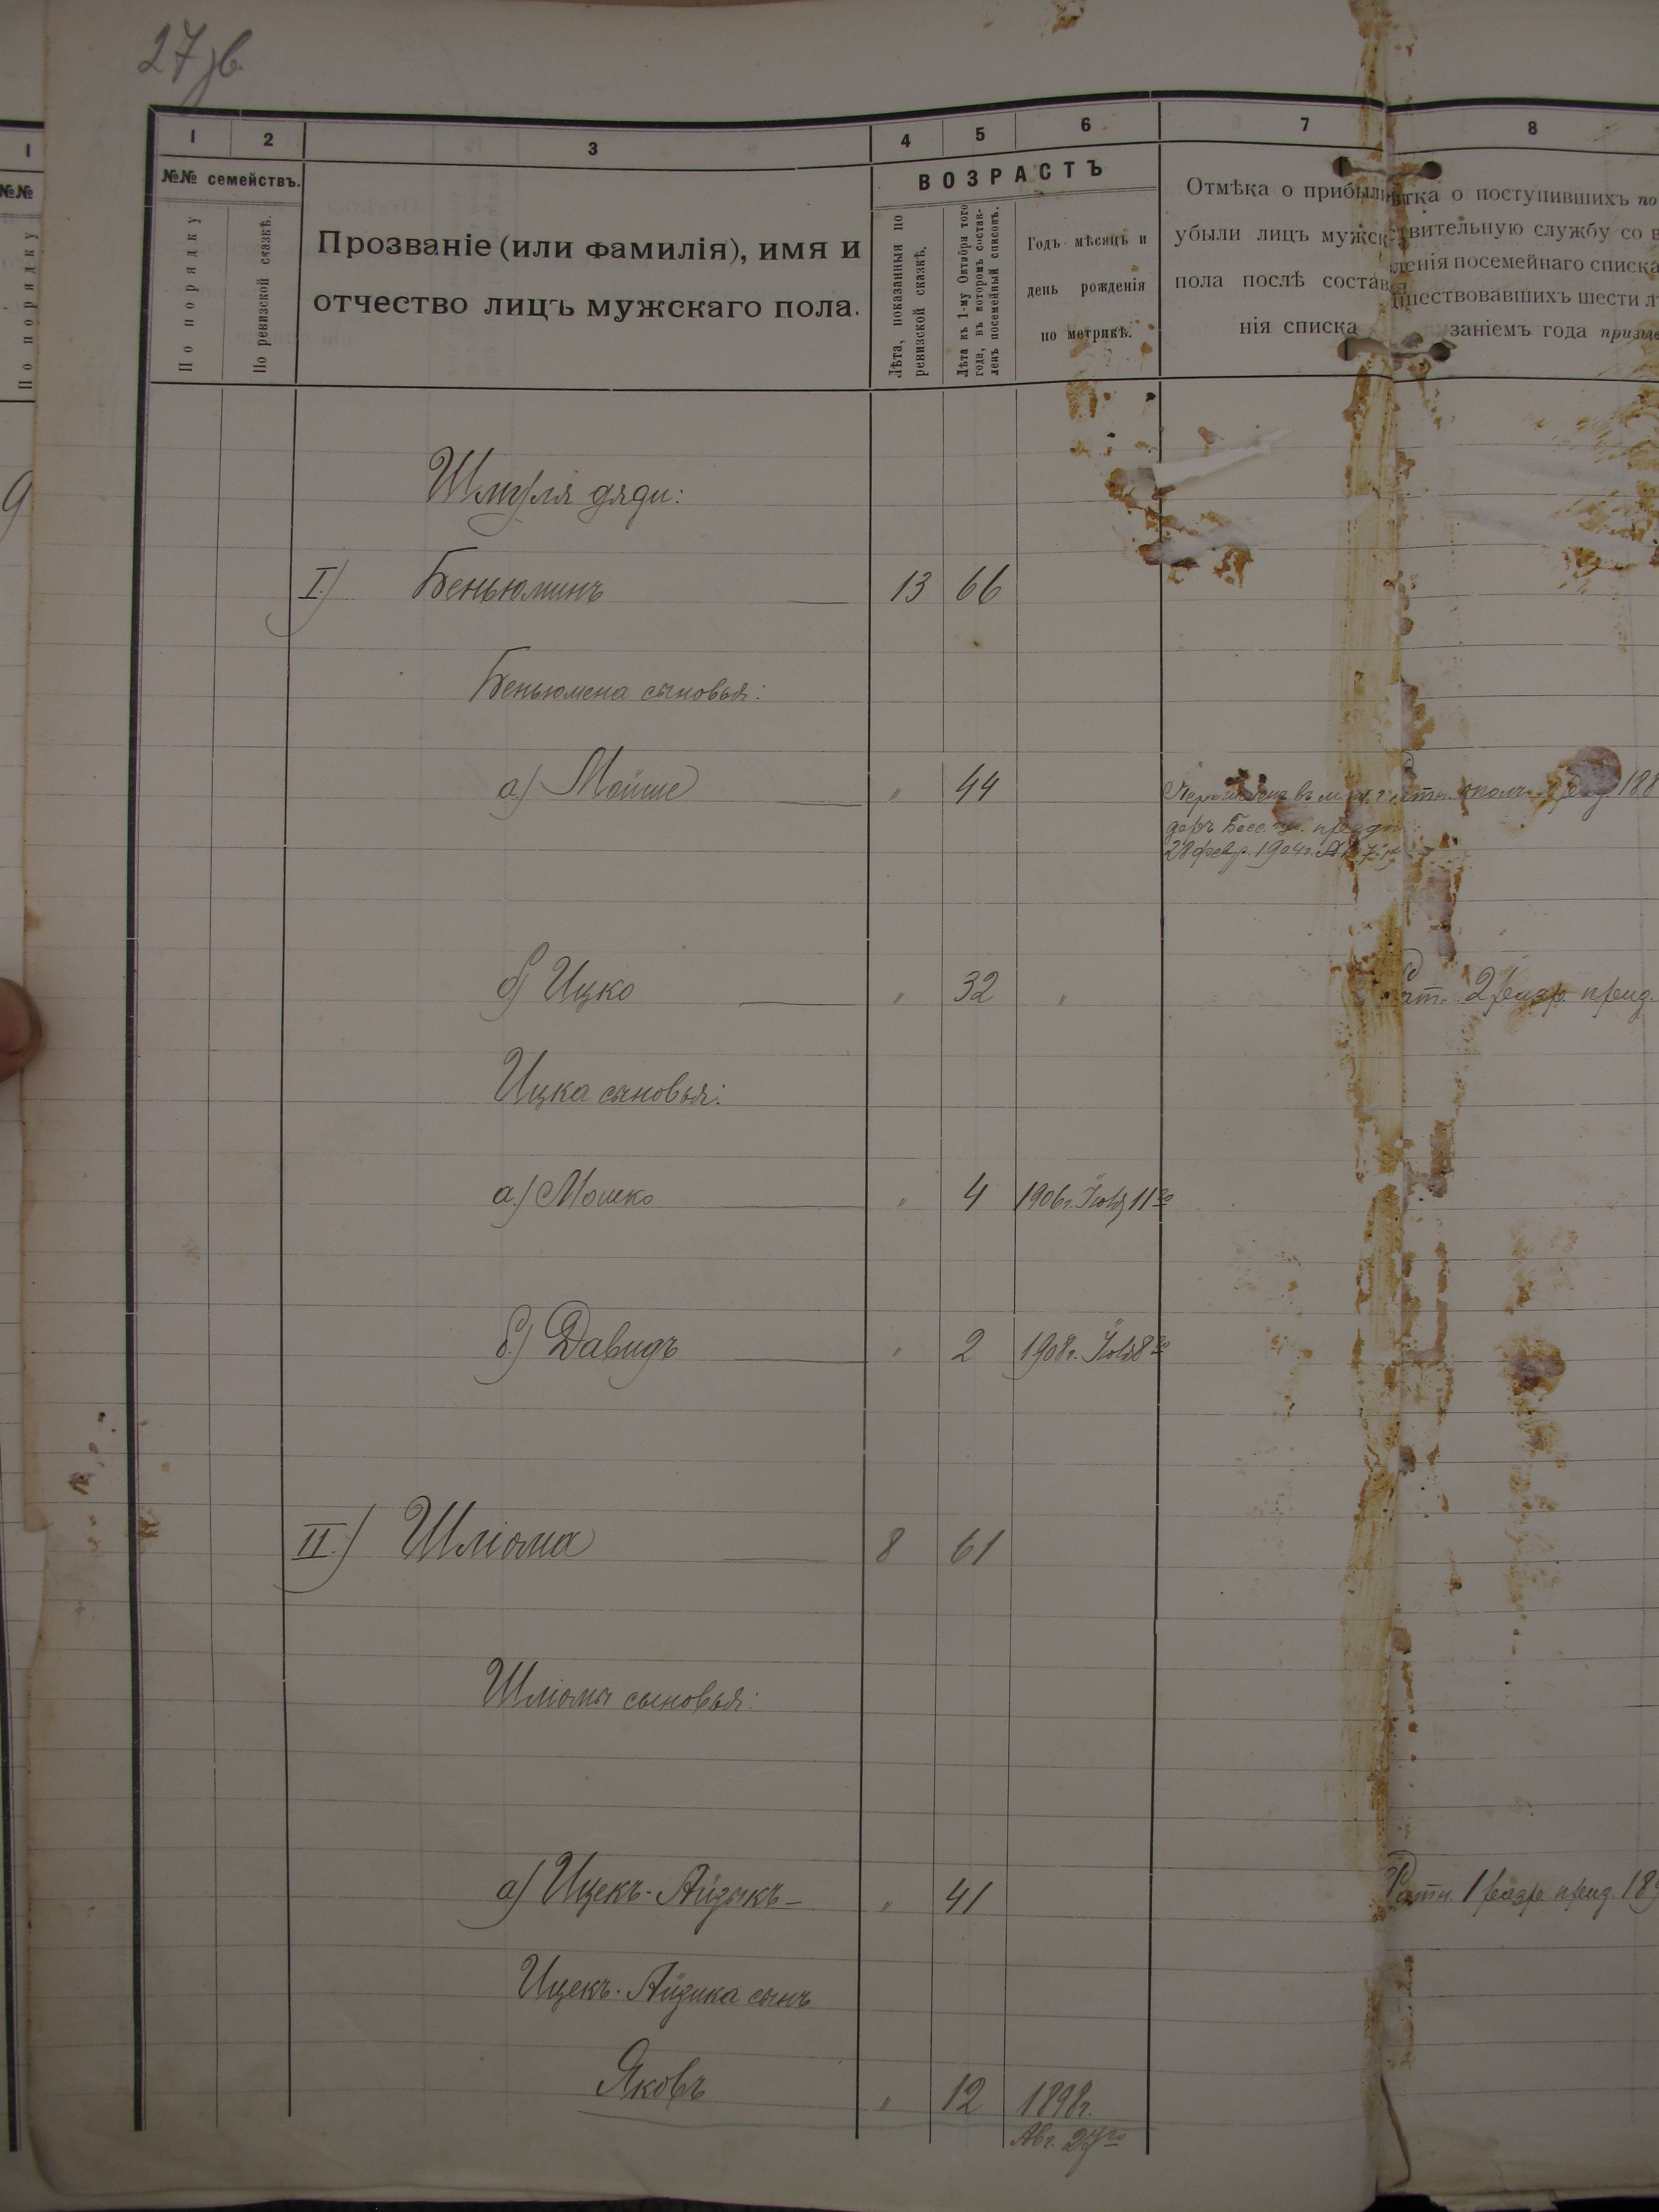 27 зв.
1 2 3 4 5 6 7 8
№№ семействъ.
По порядку
По ревизской сказкѣ.
Прозваніе (или фамилія), имя и
отчество лицъ мужскаго пола.
ВОЗРАСТЪ
Лѣта, показанныя по
ревизской сказкѣ.
Лѣта къ 1-му Октября того
года, въ которомъ состав-
ленъ посемейный списокъ.
Годъ мѣсяцъ и
день рожденія
по метрикѣ.
Отмѣка о прибыли
убыли лицъ мужск
пола послѣ состав
нія списка
тка о поступившихъ по
твительную службу со в
ленія посемейнаго списка
шествовавшихъ шести л
заніемъ года призы
1
№№
По порядку
9
Шмуля дяди:
I.) Беньюминъ 13 66
Беньюмена сыновья:
а.) Мойше " 44
въ ополч. 188
Бесс.
28 февр. 1904 г.
б) Ицко " 32 "
Рат. 2 разр. призд.
Ицка сыновья:
а.) Мошко " 4 1906 г. 11го
б.) Давидъ " 2 1908 г. 8го
II.) Шліома 8 61
Шліомы сыновья:
а) Ицекъ-Айзыкъ " 41
Ратн. 1 разр. 189
Ицекъ-Айзика сынъ
Яковъ " 12 1898 г.
Авг. 27го